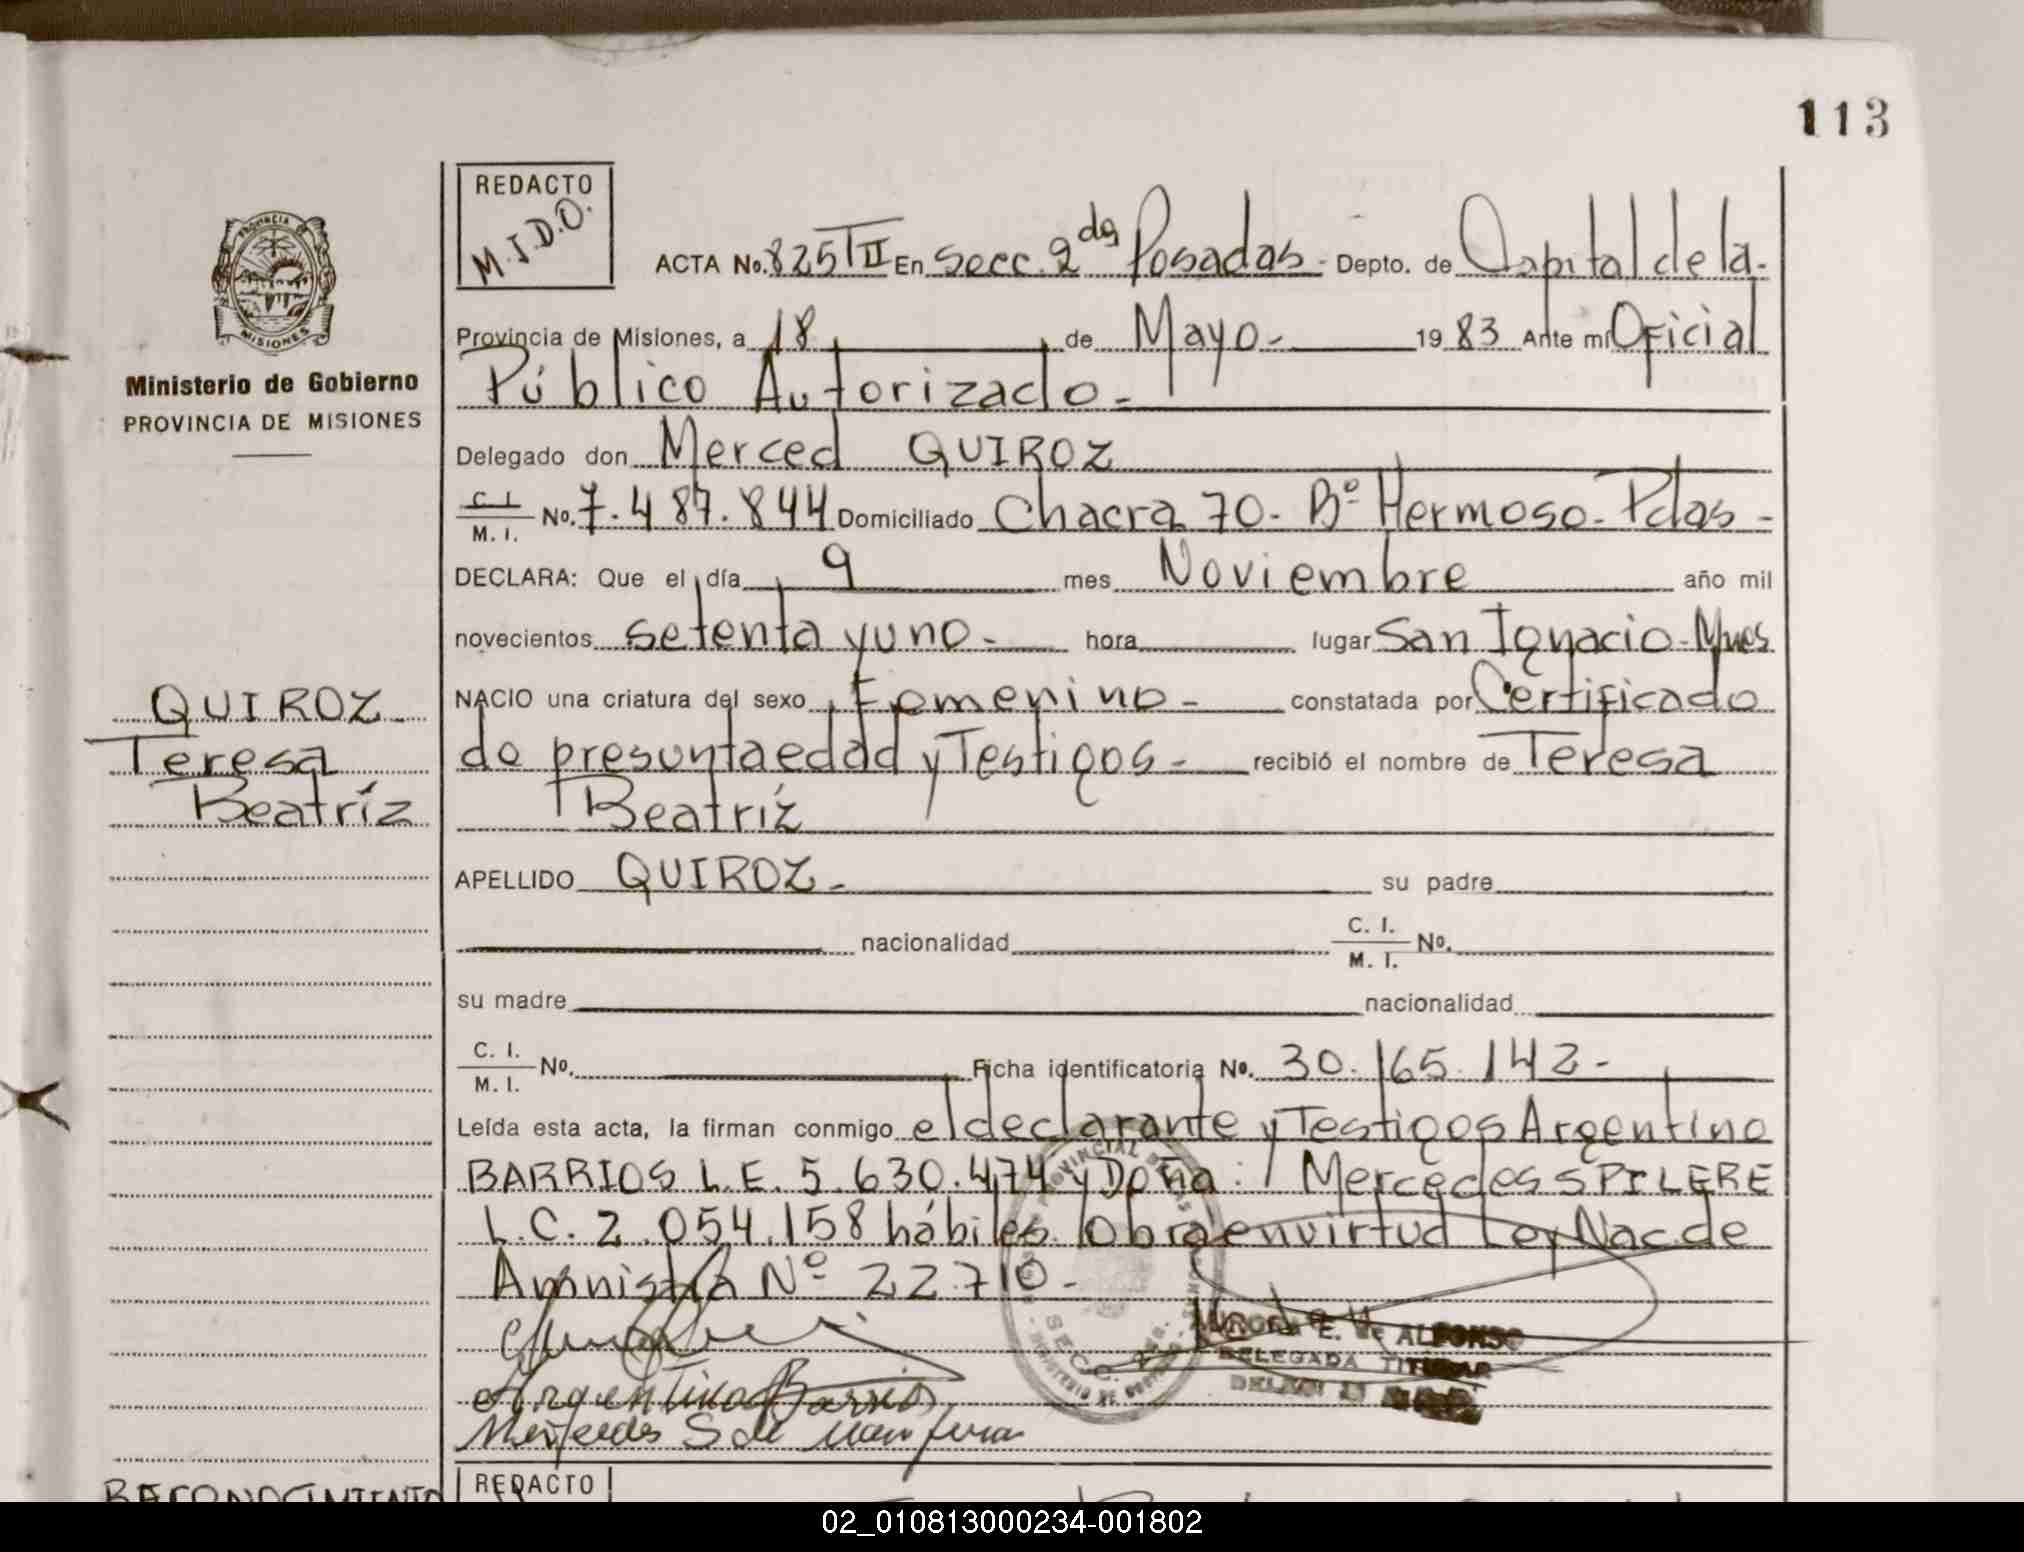 113
REDACTO
M.I.D.O.
ACTA No. 825 TII En Secc. 2da Posadas - Depto. de Capital de la
Provincia de Misiones, a 18 de Mayo - 1983 Ante mi Oficial
Público Autorizado -
Delegado don Merced QUIROZ
C. I. / M. I. No. 7.487.844 Domiciliado Chacra 70 - Bº Hermoso - Pdas -
DECLARA: Que el día 9 mes Noviembre año mil
novecientos setenta y uno - hora lugar San Ignacio - Mnes
NACIO una criatura del sexo Femenino - constatada por Certificado
de presunta edad y Testigos - recibió el nombre de Teresa
Beatríz
APELLIDO QUIROZ - su padre
nacionalidad C. I. / M. I. No.
su madre nacionalidad
C. I. / M. I. No. Ficha identificatoria No. 30.165.142 -
Leída esta acta, la firman conmigo el declarante y Testigos Argentino
BARRIOS L.E. 5.630.474 y Doña: Mercedes SPILERE
L.C. 2.054.158 hábiles. Obra en virtud Ley Nac. de
Amnistía Nº 22.710 -
Argentino Barrios
Mercedes S de
AURORA E. de ALFONSO
DELEGADA TITULAR
PROVINCIA DE
MISIONES
Ministerio de Gobierno
PROVINCIA DE MISIONES
QUIROZ
Teresa
Beatríz
RECONOCIMIENTO
REDACTO
02_010813000234-001802